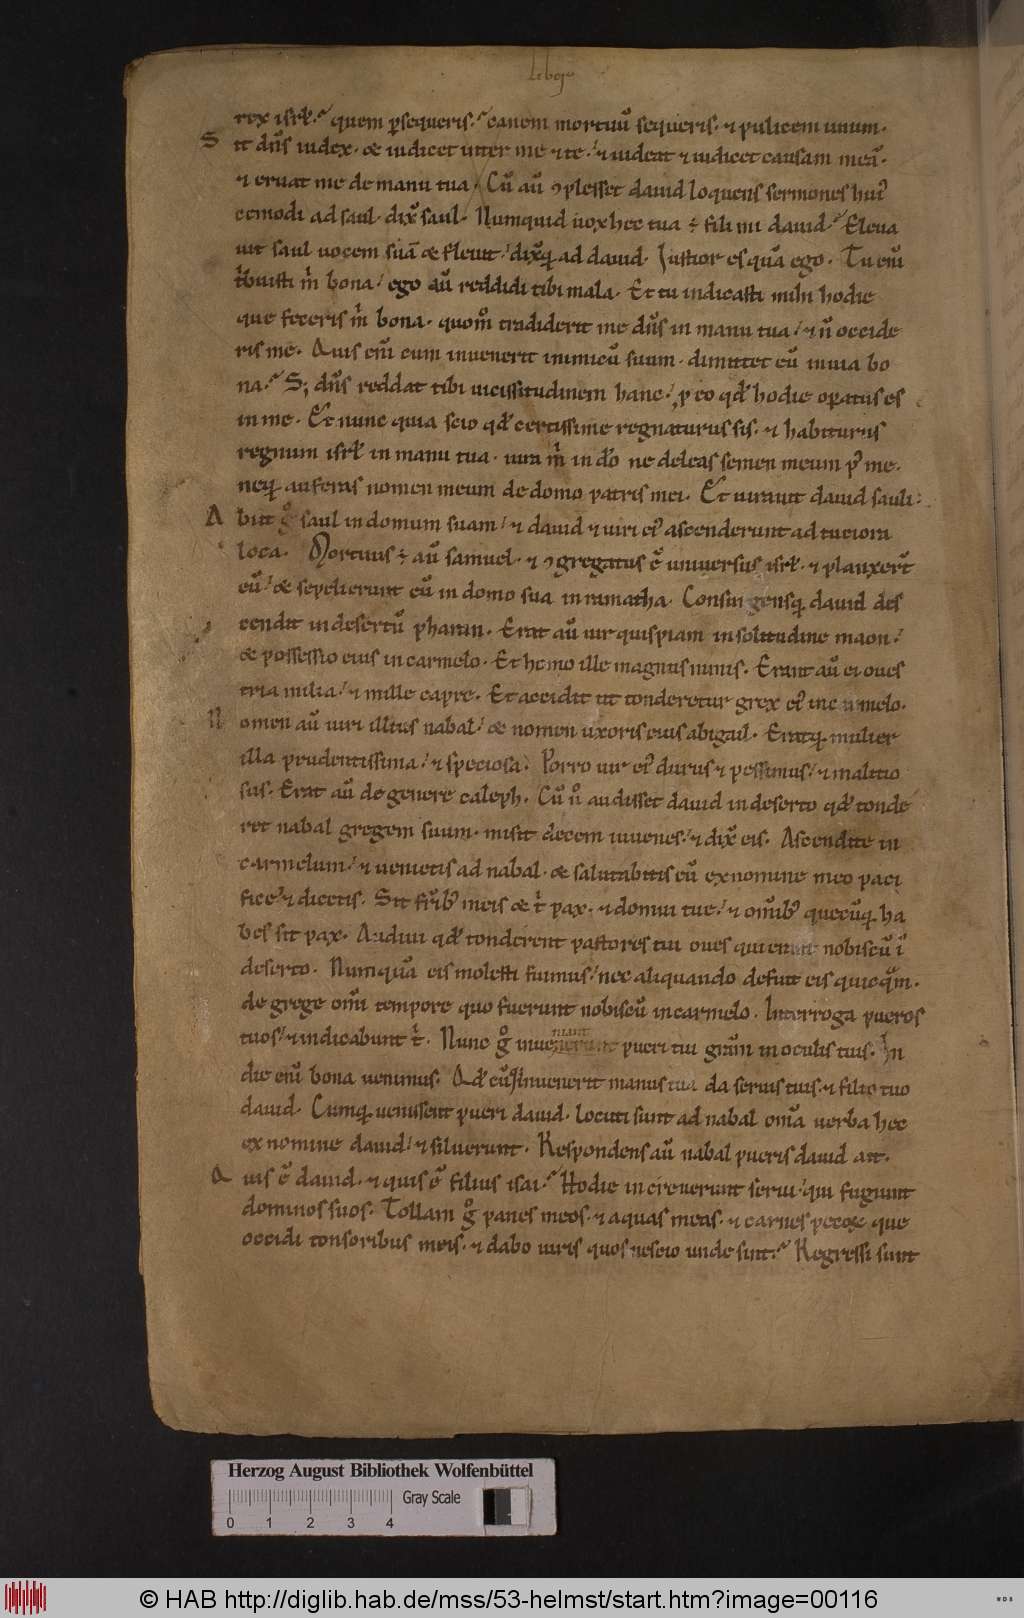 Liber
rex isrł. quem ꝑsequeris. canem mortuū sequeris. ⁊ pulicem unum.
Sit dn̄s iudex. & iudicet inter me ⁊ te. ⁊ uideat ⁊ iudicet causam meā.
⁊ eruat me de manu tua. Cū aū ↄplesset dauid loquens sermones hui᾽
cemodi ad saul. dix̄ saul. Numquid uox hec tua ÷ fili mi dauid. Eleua
uit saul uocem suā & fleuit. dix̄q; ad dauid. Iustior es quā ego. Tu enī
t̓buisti m̓ bona. ego aū reddidi tibi mala. Et tu indicasti mihi hodie
que feceris m̓ bona. quom̊ tradiderit me dn̄s in manu tua. ⁊ ñ occide
ris me. Quis enī cum inuenerit inimicū suum. dimittet eū in uia bo
na. S; dn̄s reddat tibi uicissitudinem hanc. ꝓ eo qđ hodie oꝑatus es
in me. Et nunc quia scio qđ certissime regnaturus sis. ⁊ habiturus
regnum isrł in manu tua. iura m̓ in dō ne deleas semen meum p᾽ me.
neq; auferas nomen meum de domo patris mei. Et iurauit dauid sauli.
Abiit g̊ saul in domum suam. ⁊ dauid ⁊ uiri ei᾽ ascenderunt ad tuciora
loca. Mortuus ÷ aū samuel. ⁊ ↄgregatus ē uniuersus isrł. ⁊ planxer̄t
eū. & sepelierunt eū in domo sua in ramatha. Consurgensq; dauid des
cendit in desertū pharan. Erat aū uir quispiam in solitudine maon.
& possessio eius in carmelo. Et homo ille magnus nimis. Erant aū ei oues
tria milia. ⁊ mille capre. Et accidit ut tonderetur grex ei᾽ in carmelo.
Nomen aū uiri illius nabal. & nomen uxoris eius abigail. Eratq; mulier
illa prudentissima. ⁊ speciosa. Porro uir ei᾽ durus ⁊ pessimus. ⁊ malitio
sus. Erat aū de genere caleph. Cū g̊ audisset dauid in deserto qđ tonde
ret nabal gregem suum. misit decem iuuenes. ⁊ dix̄ eis. Ascendite in
carmelum. ⁊ uenietis ad nabal. & salutabitis eū ex nomine meo paci
fice. ⁊ dicetis. Sit fr̄ib᾽ meis & t̓ pax. ⁊ domui tue. ⁊ om̄ib᾽ quecūq; ha
bes sit pax. Audiui qđ tonderent pastores tui oues qui erant nobiscū ī
deserto. Numquā eis molesti fuimus. nec aliquando defuit eis quicq̄m.
de grege om̄i tempore quo fuerunt nobiscū in carmelo. Interroga pueros
tuos. ⁊ indicabunt t̓. Nunc g̊ inueniant pueri tui gr̄am in oculis tuis. In
die enī bona uenimus. Qđcūq; inuenerit manus tua da seruis tuis. ⁊ filio tuo
dauid. Cumq; uenissent pueri dauid. locuti sunt ad nabal om̄a uerba hec
ex nomine dauid. ⁊ siluerunt. Respondens aū nabal pueris dauid ait.
Quis ē dauid. ⁊ quis ē filius isai. Hodie increuerunt serui. qui fugiunt
dominos suos. Tollam g̊ panes meos. ⁊ aquas meas. ⁊ carnes pecoꝝ que
occidi tonsoribus meis. ⁊ dabo uiris quos nescio unde sint. Regressi sunt
Herzog August Bibliothek Wolfenbüttel
Gray Scale
0 1 2 3 4
© HAB http://diglib.hab.de/mss/53-helmst/start.htm?image=00116